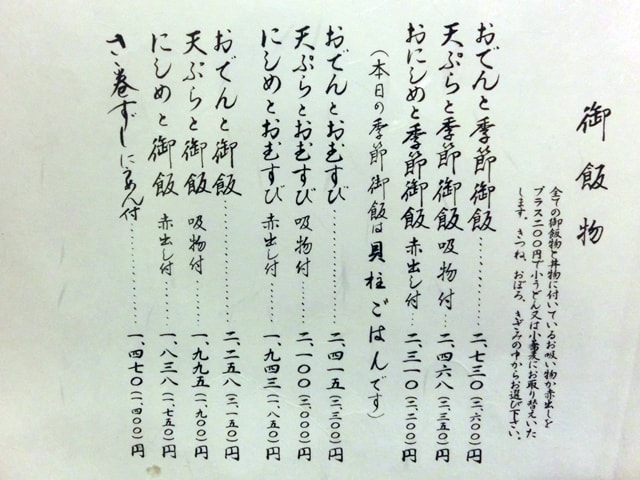 御飯物
全ての御飯物と丼物に付いているお吸い物か赤出しを
プラス二〇〇円で小うどん又は小蕎麦にお取り替えいた
します。きつね、おぼろ、きざみの中からお選び下さい。
おでんと季節御飯………二、七三〇(二、六〇〇)円
天ぷらと季節御飯 吸物付…二、四六八(二、三五〇)円
おにしめと季節御飯 赤出し付…二、三一〇(二、二〇〇)円
(本日の季節御飯は貝柱ごはんです)
おでんとおむすび………二、四一五(二、三〇〇)円
天ぷらとおむすび 吸物付…二、一〇〇(二、〇〇〇)円
にしめとおむすび 赤出し付…一、九四三(一、八五〇)円
おでんと御飯………二、二五八(二、一五〇)円
天ぷらと御飯 吸物付…一、九九五(一、九〇〇)円
にしめと御飯 赤出し付…一、八三八(一、七五〇)円
巻ずしにうめん付………一、四七〇(一、四〇〇)円